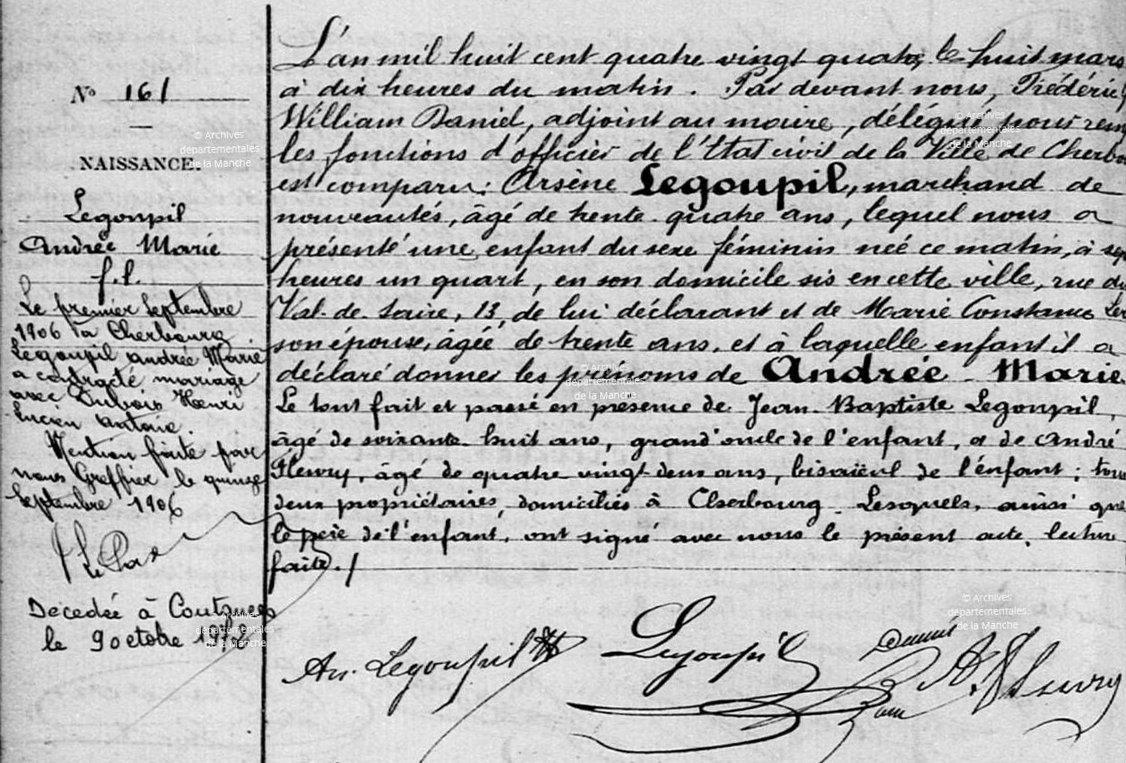 N° 161
NAISSANCE.
Legoupil
Andrée Marie
f. l.
Le premier Septembre
1906 à Cherbourg
Legoupil Andrée Marie
a contracté mariage
avec Dubois Henri
Lucien Antoine.
Mention faite par
nous Greffier le quinze
Septembre 1906
Décédée à Coutances
le 9 octobre
L'an mil huit cent quatre vingt quatre, le huit mars
à dix heures du matin. Par devant nous, Frédéric
William Daniel, adjoint au maire, délégué pour rem
les fonctions d'officier de l'État civil de la Ville de Cherbo
est comparu: Arsène Legoupil, marchand de
nouveautés, âgé de trente quatre ans, lequel nous a
présenté une enfant du sexe féminin née ce matin, à sep
heures un quart, en son domicile sis en cette ville, rue du
Val-de-Saire, 13, de lui déclarant et de Marie Constance
son épouse, âgée de trente ans, et à laquelle enfant il a
déclaré donner les prénoms de Andrée Marie
Le tout fait et passé en présence de Jean-Baptiste Legoupil,
âgé de soixante-huit ans, grand'oncle de l'enfant, et de André
Fleury, âgé de quatre vingt deux ans, bisaïeul de l'enfant; tous
deux propriétaires, domiciliés à Cherbourg. Lesquels, ainsi que
le père de l'enfant, ont signé avec nous le présent acte, lecture
faite./
An. Legoupil
Legoupil
Daniel
A. Fleury
© Archives
départementales
de la Manche
© Archives
départementales
de la Manche
© Archives
départementales
de la Manche
© Archives
départementales
de la Manche
© Archives
départementales
de la Manche